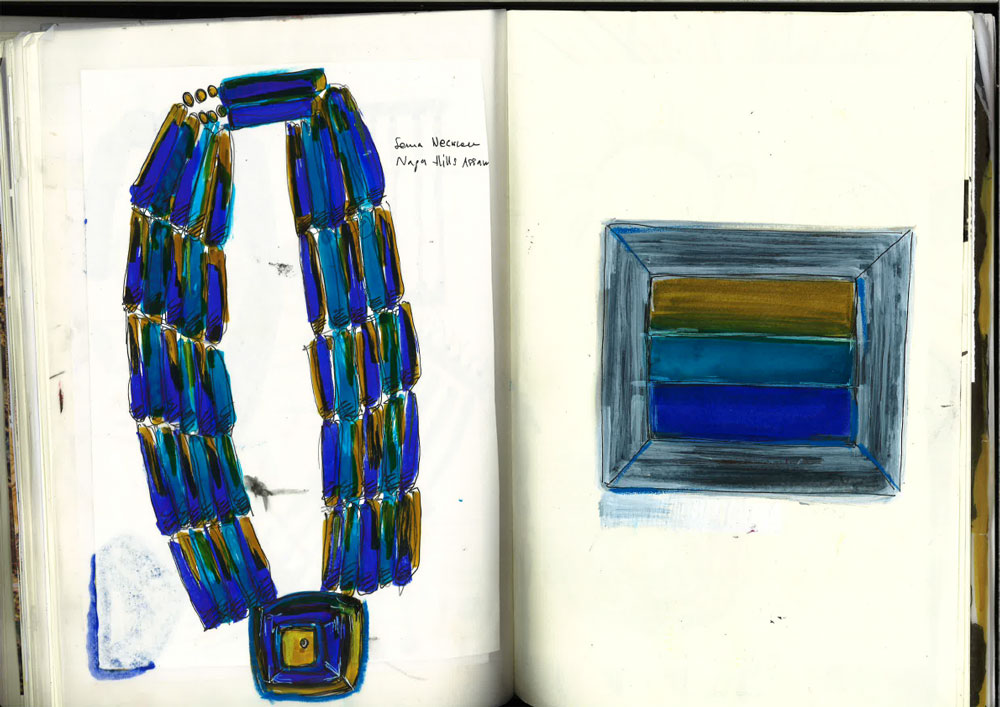 Sema Necklace
Naga Hills Assam